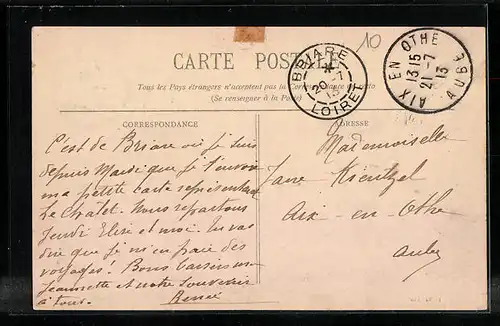 10
CARTE POSTALE
Tous les Pays étrangers n'acceptent pas la Correspondance au recto
(Se renseigner à la Poste)
BRIARE
20-7
13
LOIRET
AIX EN OTHE
13 15
21-7
13
AUBE
CORRESPONDANCE
ADRESSE
C'est de Briare où je suis
depuis Mardi que je t'envoie
ma petite carte représentant
le chalet. Nous repartons
Jeudi Elise et moi. Tu vas
dire que je m'en paie des
voyages. Bons baisers ma
Jeannette et notre souvenir
à tous.
Renée
Mademoiselle
Jane Kientzel
Aix-en-Othe
Aube